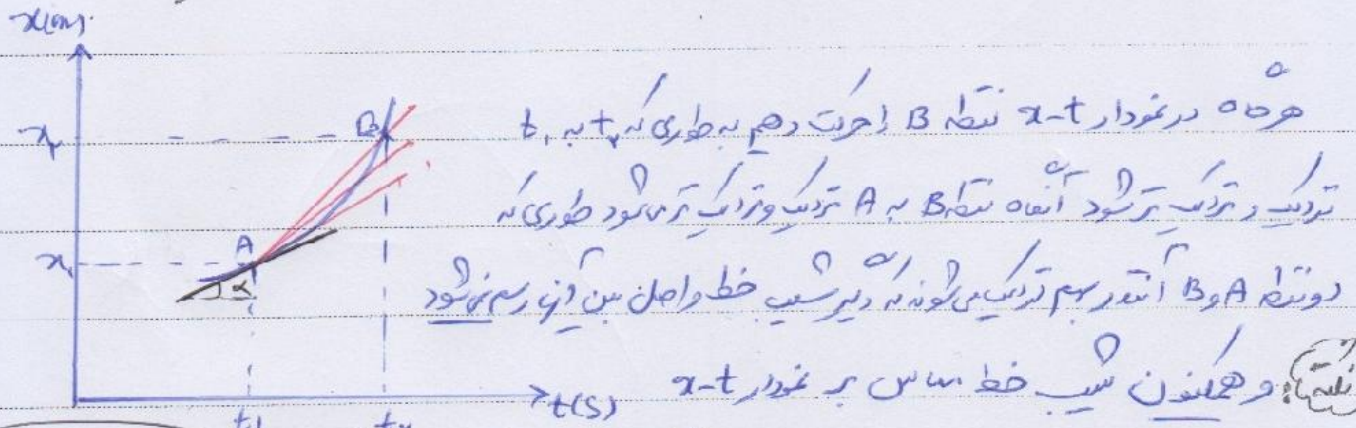 x(m)
هرگاه در نمودار x-t نقطه B را حرکت دهیم به طوری که t₂ به t₁
نزدیک و نزدیک تر شود آنگاه نقطه B به A نزدیک و نزدیک تر می شود طوری که
دو نقطه A و B آنقدر بهم نزدیک می شوند که دیگر شیب خط واصل بین آنها رسم نمی شود
نکته: و همکنون شیب خط مماس بر نمودار x-t
x₂
B
A
x₁
α
t₁
t₂
t(s)